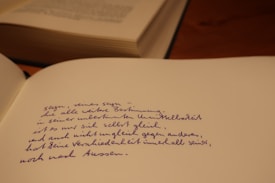 seyn, reines seyn –
die alle weitere Bestimmung.
in seiner unbestimmten Unmittelbarkeit
ist es nur sich selbst gleich,
und auch nicht ungleich gegen anderes,
hat keine Verschiedenheit innerhalb seiner,
noch nach Aussen.